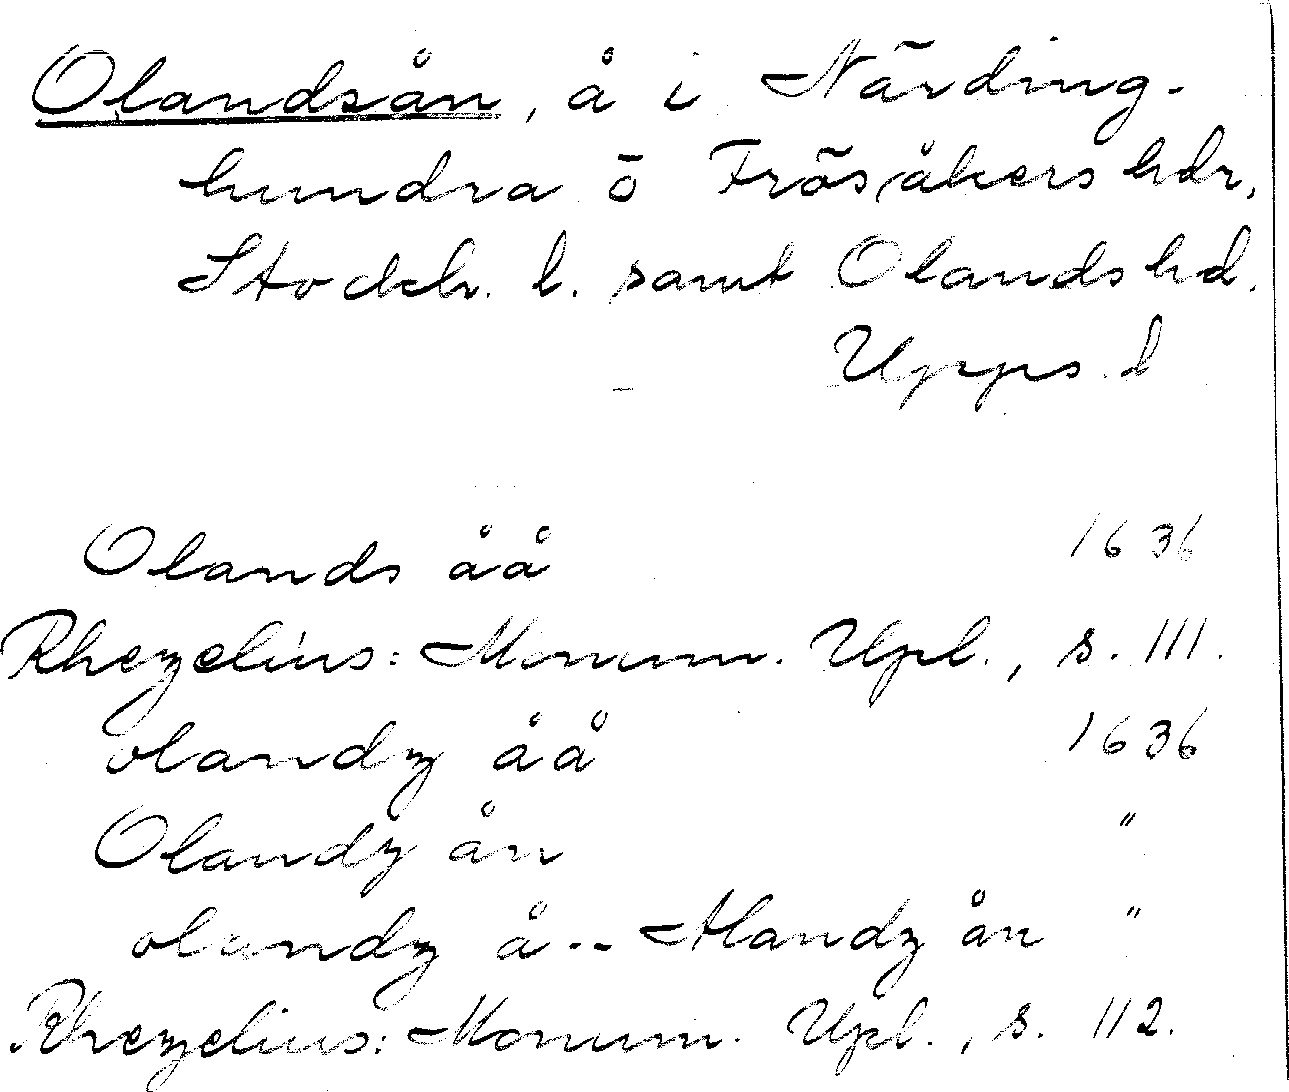 Olandsån, å i Närding-
hundra o Frösåkers hdr,
Stockh. l. samt Olands hd.
Upps. l
Olands åå 1636
Rhezelius: Monum. Upl., s. 111.
olandz åå 1636
Olandz ån "
olandz å -- Alandz ån "
Rhezelius: Monum. Upl., s. 112.